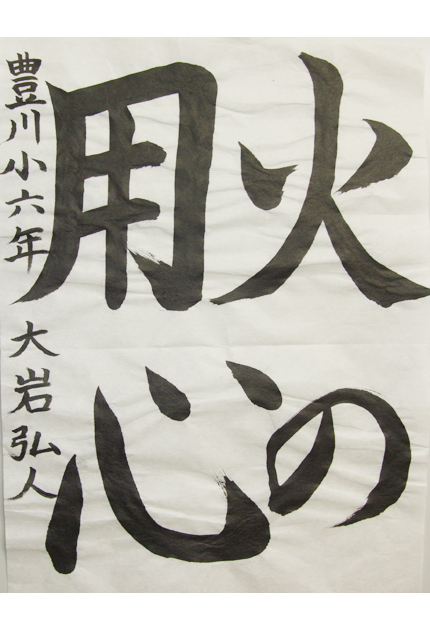 火の
用心
豊川小六年 大岩弘人